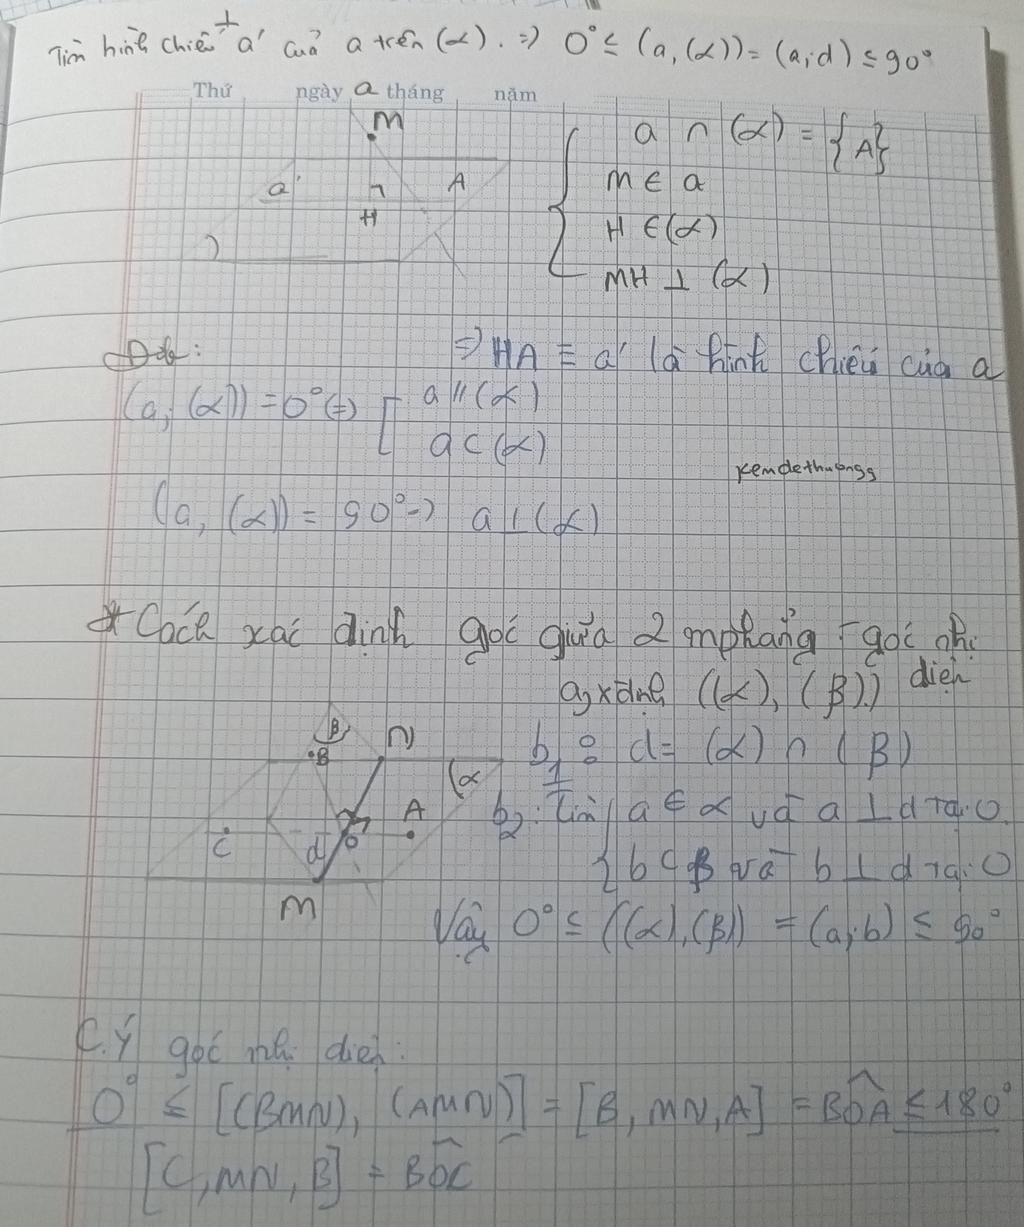 Tìm hình chiếu ⊥ a' của a trên (α). ⇒ 0° ≤ (a, (α)) = (a; d) ≤ 90°
Thứ ngày a tháng năm
M
a ∩ (α) = {A}
a' ¬ A
M ∈ a
H
H ∈ (α)
MH ⊥ (α)
⇒ HA ≡ a' là hình chiếu của a
(a; (α)) = 0° (=) [ a // (α)
a ⊂ (α)
kemdethuongss
(a, (α)) = 90° → a ⊥ (α)
* Cách xác định góc giữa 2 mphẳng - góc nhị diện
a, xđịnh ((α), (β))
β N
B
b1: d = (α) ∩ (β)
(α
A
b2: Tìm { a ∈ α và a ⊥ d tại O
C d O
b ⊂ β và b ⊥ d tại O
M
Vậy 0° ≤ ((α), (β)) = (a; b) ≤ 90°
C.Ý góc nhị diện:
0° ≤ [(BMN), (AMN)] = [B, MN, A] = BOA ≤ 180°
[C, MN, B] = BOC